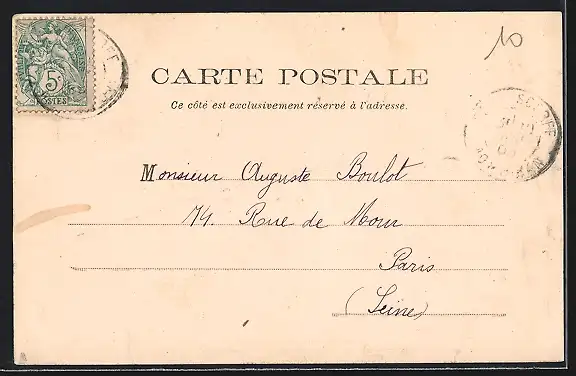 10
5c
POSTES
CARTE POSTALE
Ce côté est exclusivement réservé à l'adresse.
Monsieur Auguste Boulot
74. Rue de
Paris
(Seine)